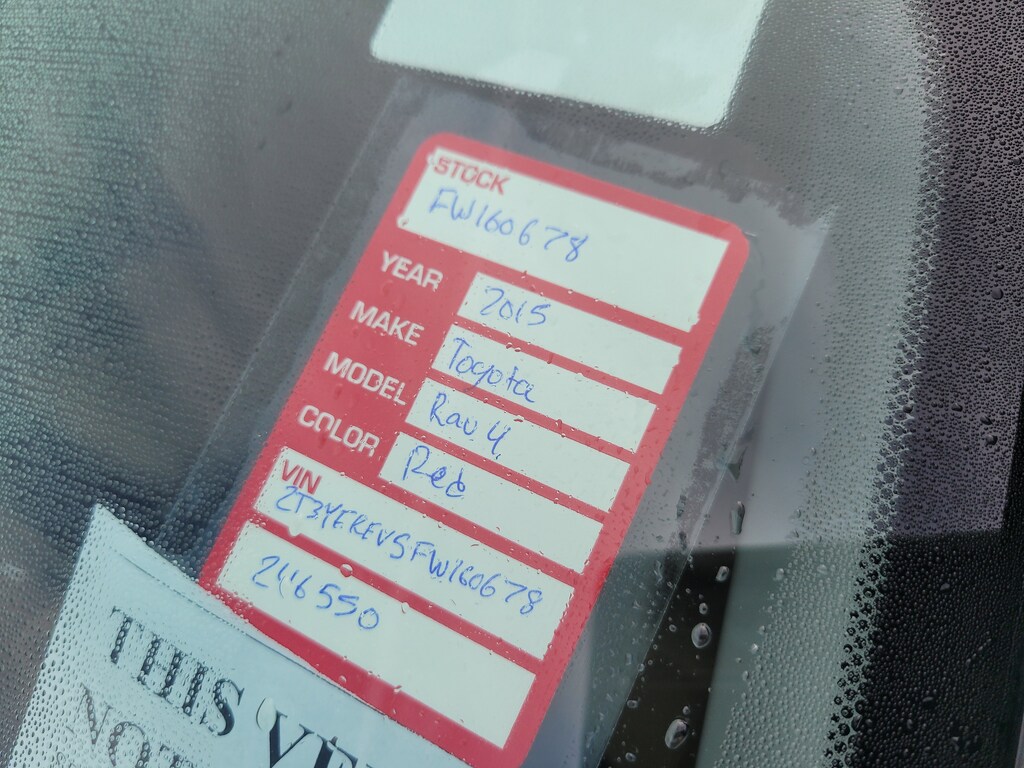 STOCK
FW160678
YEAR 2015
MAKE Toyota
MODEL Rav 4
COLOR Red
VIN
2T3YFREV5FW160678
246550
THIS
NOT